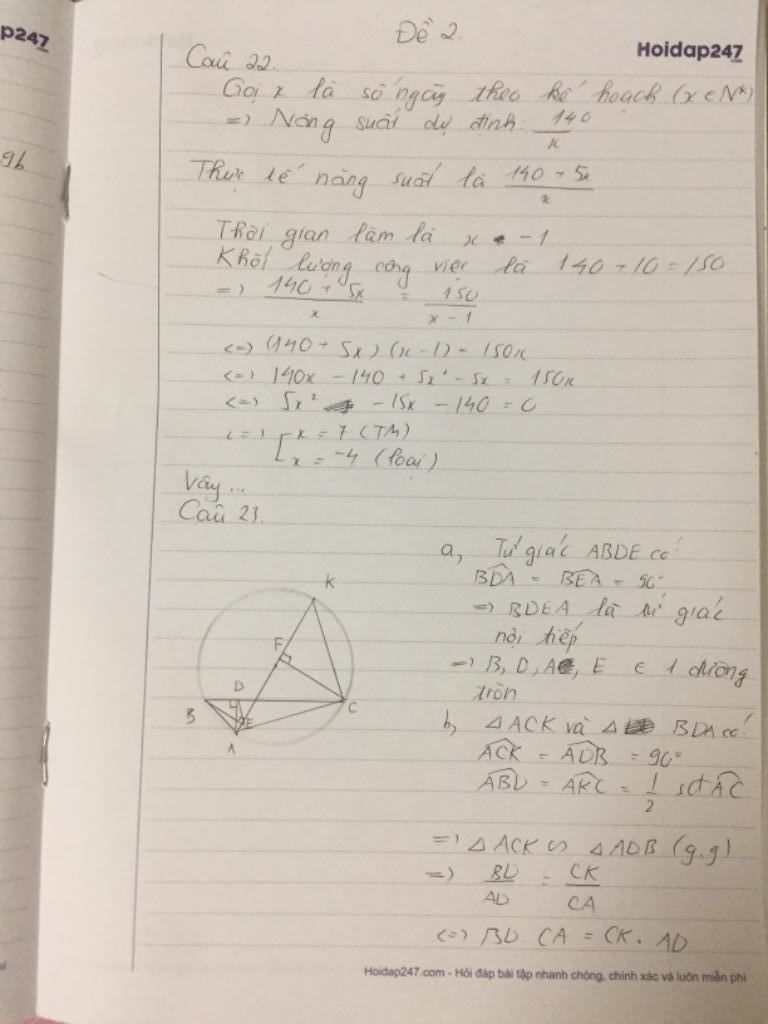 ap247
.com
9b
Đề 2.
Hoidap247
.com
Câu 22.
Gọi x là số ngày theo kế hoạch (x ∈ N*)
=> Năng suất dự định: 140/x
Thực tế năng suất là (140 + 5x)/x
Thời gian làm là x - 1
Khối lượng công việc là 140 + 10 = 150
=> (140 + 5x)/x = 150/(x - 1)
<=> (140 + 5x)(x - 1) = 150x
<=> 140x - 140 + 5x² - 5x = 150x
<=> 5x² - 15x - 140 = 0
<=> [ x = 7 (TM)
x = -4 (loại)
Vậy ...
Câu 23.
K
F
D
B
E
C
A
a, Tứ giác ABDE có:
BDA = BEA = 90°
=> BDEA là tứ giác
nội tiếp
=> B, D, A, E ∈ 1 đường
tròn
b, △ ACK và △ BDA có:
ACK = ADB = 90°
ABD = AKC = 1/2 sđ AC
=> △ ACK ∽ △ ADB (g.g)
=> BD/AD = CK/CA
<=> BD. CA = CK. AD
Hoidap247.com - Hỏi đáp bài tập nhanh chóng, chính xác và luôn miễn phí